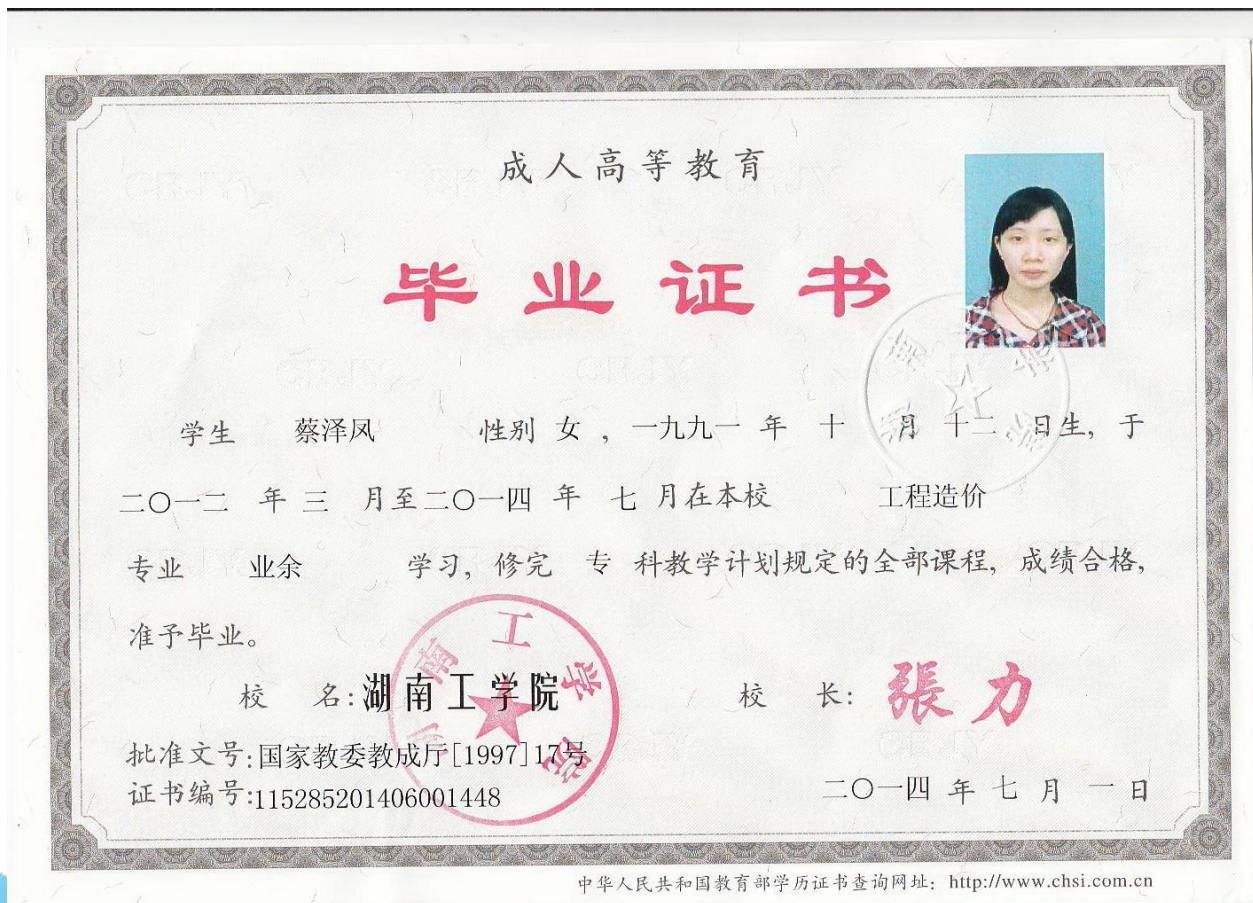 成人高等教育
毕业证书
学生 蔡泽凤 性别 女 , 一九九一 年 十 月 十二 日生, 于
二〇一二 年 三 月至二〇一四 年 七 月在本校 工程造价
专业 业余 学习, 修完 专 科教学计划规定的全部课程, 成绩合格,
准予毕业。
校 名: 湖南工学院 校 长: 張力
批准文号: 国家教委教成厅[1997]17号
证书编号: 115285201406001448
二〇一四 年 七 月 一 日
湖南工学院
湖南工学院
中华人民共和国教育部学历证书查询网址: http://www.chsi.com.cn